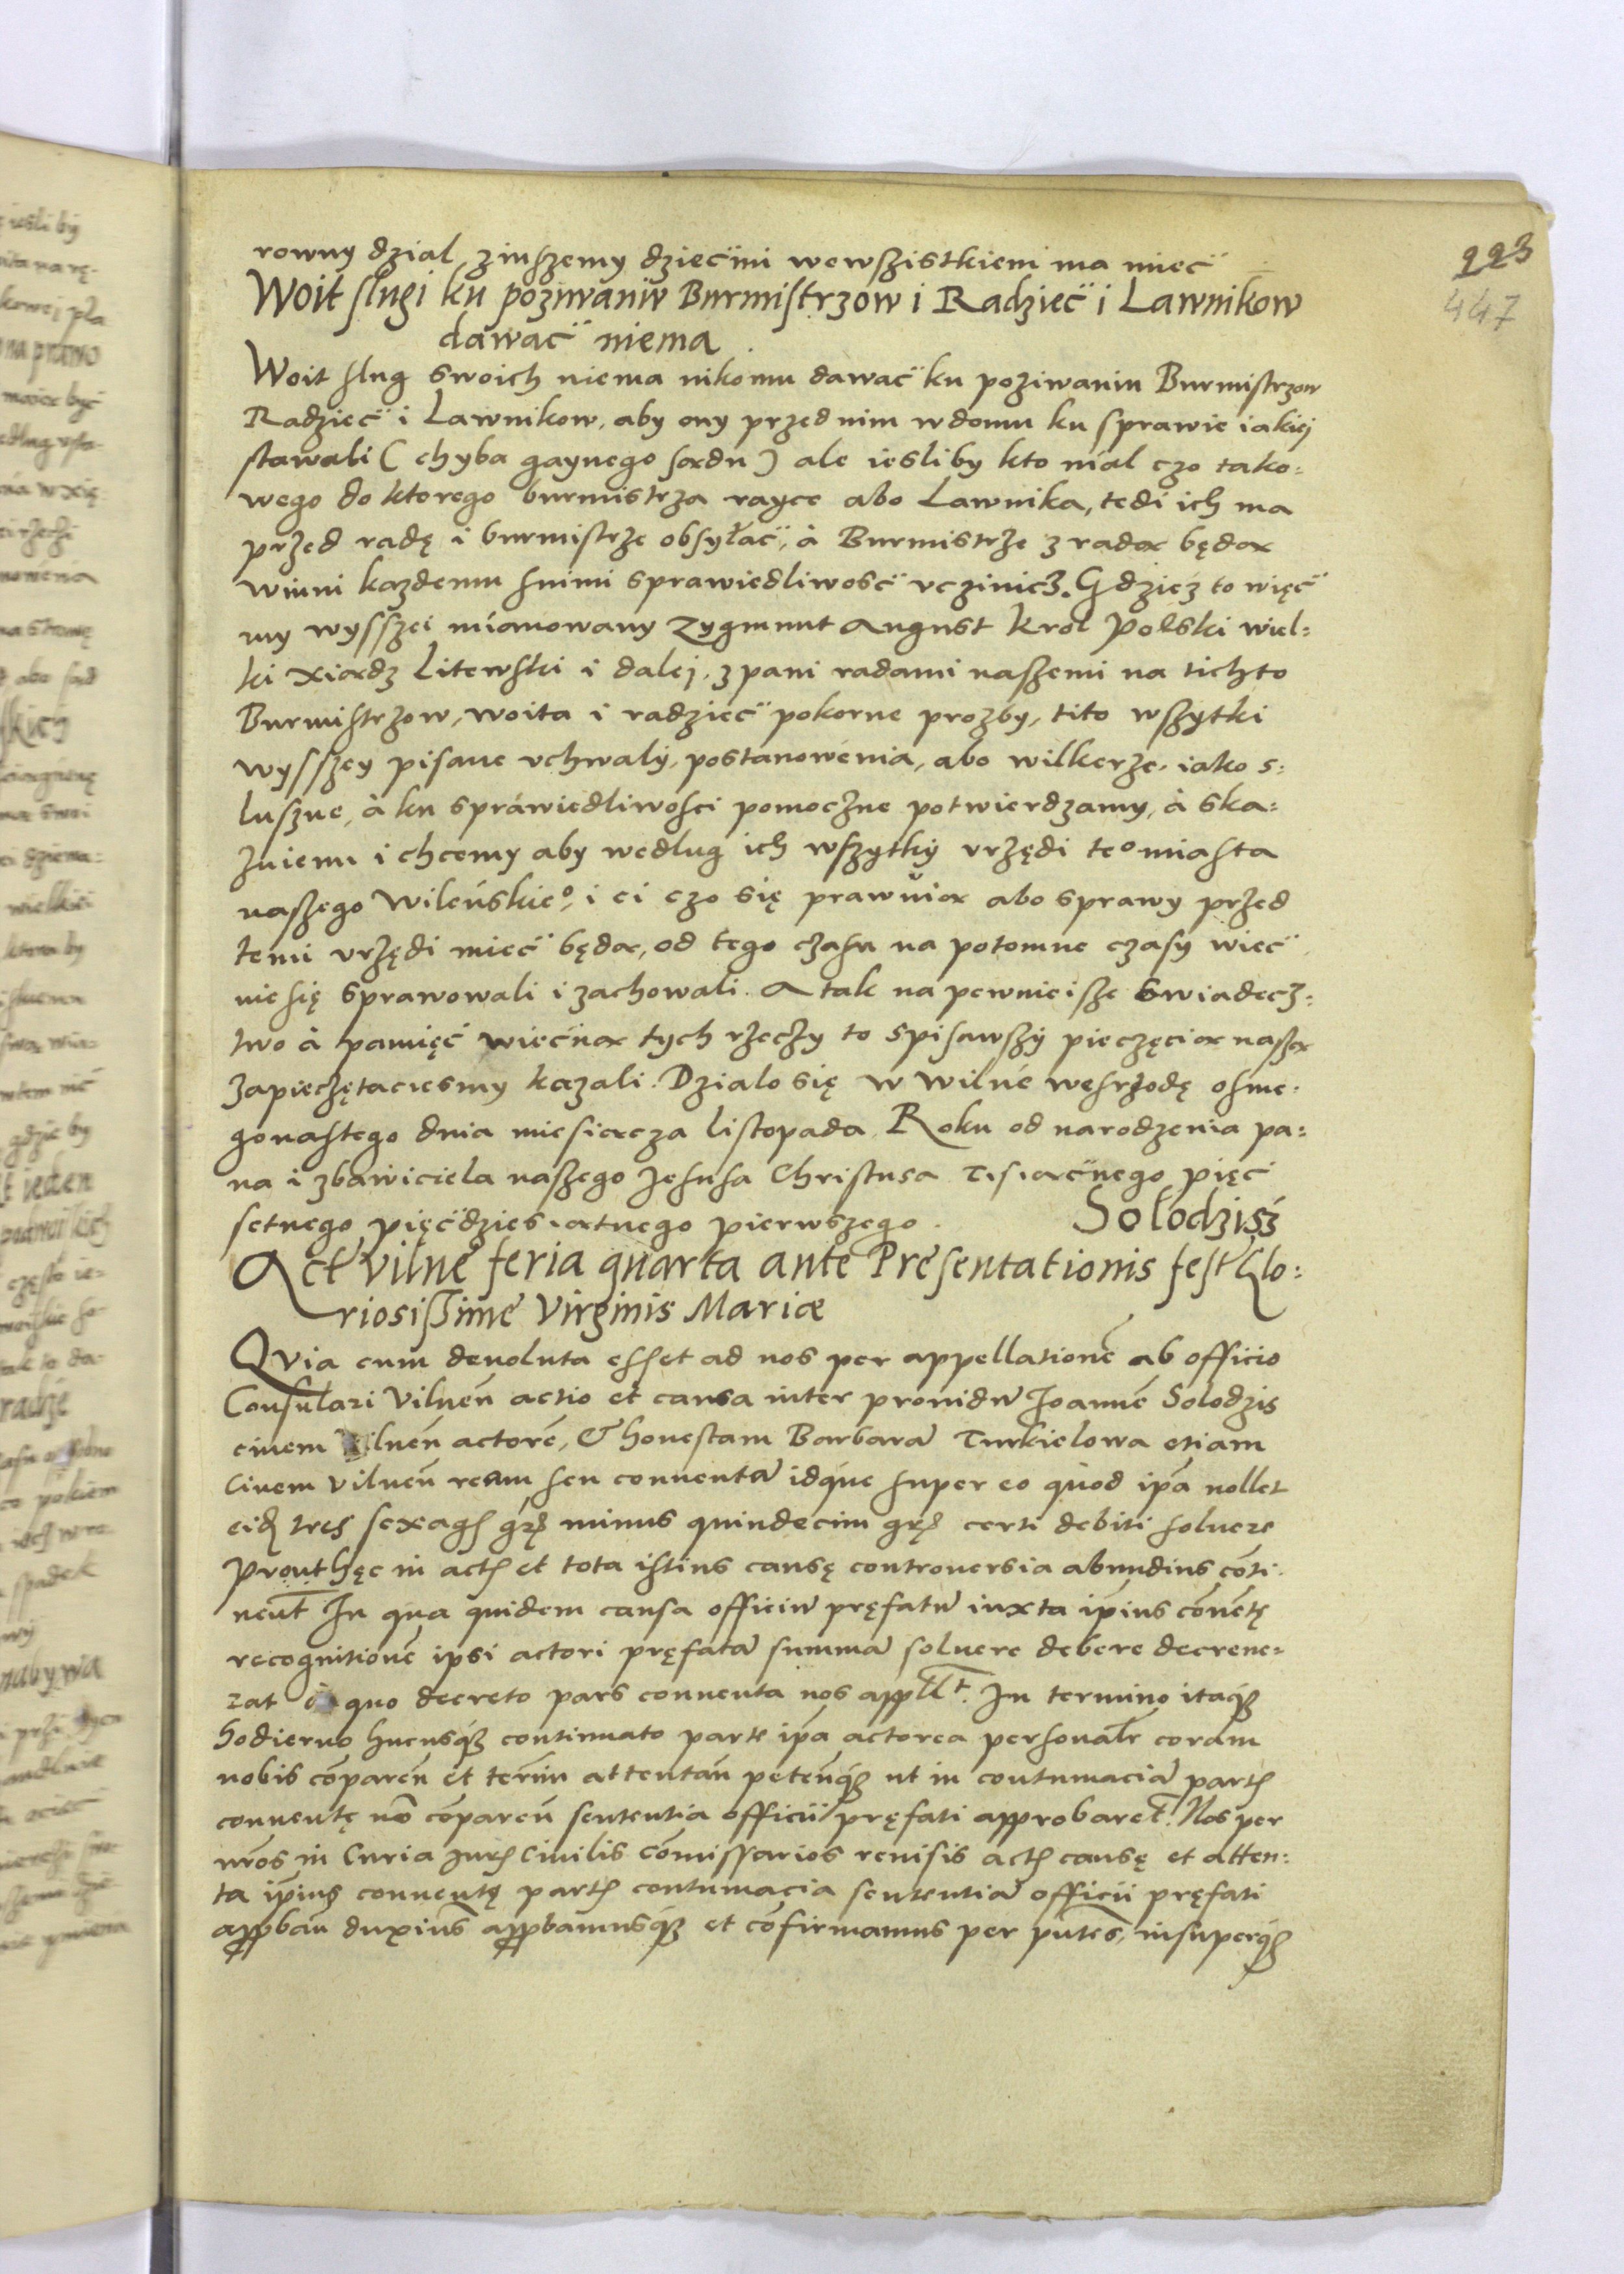 223
447
rowny dzial zinszemy dziecmi wewszistkiem ma miec
Woit slugi ku pozivaniu Burmistrzow i Radziec i Lawnikow
dawac niema
Woit slug swoich niema nikomu dawac ku poziwaniu Burmistrzow
Radziec i Lawnikow, aby ony przed nim wdomu ku sprawie iakiej
stawali ( chyba gaynego sądu ) ale iesliby kto mial czo tako:
wego do ktorego burmistrza rayce abo Lawnika, tedi ich ma
przed radę i burmistrze obsyłac, à Burmistrze z radą będą
winni kazdemu snimi sprawiedliwosc vczinicz. Gdziez to więc
my wysszei mianowany Zygmunt August Krol Polski wiel:
ki Xiądz Litewski i dalej. z pani radami naszemi na tichto
Burmistrzow, woita i radziec pokorne prozby, tito wszytki
wysszey pisane vchwaly, postanowénia, abo wilkerze. iako s:
luszne, à ku spráwiedliwosci pomoczne potwierdzamy, à ska:
zuiemy i chcemy aby wedlug ich wszytky vrzędi te° miasta
naszego Wileńskie°, i ci czo się prawuią abo sprawy przed
temi vrzędi miec będą, od tego czasu na potomne czasy wiec
nie się sprawowali i zachowali. A tak na pewnieisze swiadecz:
two à pamięć wiećną tych rzeczy to spisawszy pieczęcią naszą
zapieczętaciesmy kazali. Dzialo się w Wilné wesrzodę osme.
gonastego dnia miesiącza listopada. Roku od narodzenia pa:
na i zbawiciela naszego Jesusa Christusa Tisiącnego pięć
setnego pięćdziesiątnego pierwszego.
Solodzisz
Act Vilne feria quarta ante Presentationis fest Glo:
riosissime Virginis Mariæ
Qvia cum deuoluta esset ad nos per appellationē ab officio
Consulari Vilnen̄ actio et causa inter prouidū Joannē Solodzis
ciuem Vilnen̄ actorē, & honestam Barbarā Turkielowa etiam
Ciuem vilnen̄ ream seu conuentā idque super eo quod ip̄a nollet
eid tres sexag gr̄ minus quindecim gr̄ certi debiti soluere
prout hęc in act et tota istius causę controuersia abundius cōti.
nent̄ In qua quidem causa officiū pręfatū iuxta ip̄ius cōuētę
recognitionē ipsi actori pręfatā summā soluere debere decreue:
rat à quo decreto pars conuenta nos appllt. In termino itaq3
hodierno hucusq3 continuato parte ip̄a actorea personalr̄ coram
nobis cōparen̄ et termin attentan̄ peten̄q3 ut in contumaciā part
conuentę nō cōparen̄ sententia officii pręfati approbaret̄. Nos per
nr̄os in Curia Jur Ciuilis cōmissarios reuisis act causę et atten:
ta ip̄ius conuentę part contumacia sententiā officii pręfati
appban̄ duxim9 appbamusq3 et cōfirmamus per pn̄tes, insuperq3